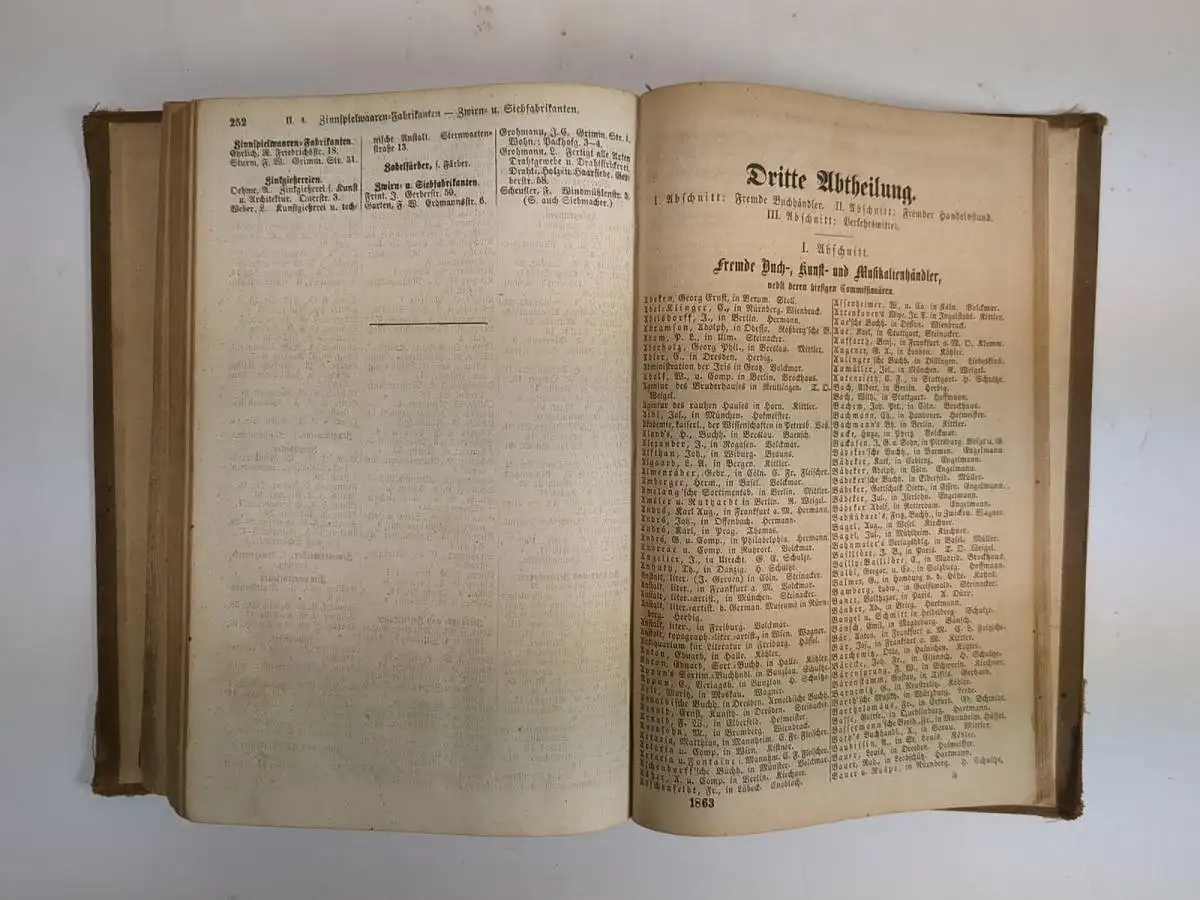 252 II. 4. Zinnspielwaaren-Fabrikanten — Zwirn- u. Siebfabrikanten.
Zinnspielwaaren-Fabrikanten.
Ehrlich, R. Friedrichsstr. 18.
Sturm, F. W. Grimm. Str. 31.
Zinkgießereien.
Oehme, A. Zinkgießerei f. Kunst
u. Architektur. Querstr. 3.
Weber, L. Kunstgießerei u. tech-
nische Anstalt. Sternwarten-
straße 13.
Zobelfärber, s. Färber.
Zwirn- u. Siebfabrikanten.
Frint, J. Gerberstr. 50.
Garten, F. W. Erdmannsstr. 6.
Grohmann, J. G. Grimm. Str. 1.
Wohn.: Packhofg. 3-4.
Grohmann, L. Fertigt alle Arten
Drahtgewebe u. Drahtstrickerei,
Draht-, Holz- u. Haarsiebe. Ger-
berstr. 58.
Scheufler, F. Windmühlenstr. 3.
(S. auch Siebmacher.)
Dritte Abtheilung.
I. Abschnitt: Fremde Buchhändler. II. Abschnitt: Fremder Handelsstand.
III. Abschnitt: Verkehrsmittel.
I. Abschnitt.
Fremde Buch-, Kunst- und Musikalienhändler,
nebst deren hiesigen Commissionären.
Abeken, Georg Ernst, in Berum. Stoll.
Abel-Klinger, C., in Nürnberg. Wienbrack.
Abelsdorff, J., in Berlin. Hermann.
Abramson, Adolph, in Odessa. Roßberg'sche B.
Adam, P. L., in Ulm. Steinacker.
Aderholz, Georg Phil., in Breslau. Mittler.
Adler, C., in Dresden. Herbig.
Administration der Iris in Gratz. Volckmar.
Adolf, W., u. Comp. in Berlin. Brockhaus.
Agentur des Bruderhauses in Reutlingen. T. O.
Weigel.
Agentur des rauhen Hauses in Horn. Kittler.
Aibl, Jos., in München. Hofmeister.
Akademie, kaiserl., der Wissenschaften in Petersb. Voß.
Aland's, H., Buchh. in Breslau. Baensch.
Alexander, J., in Rogasen. Volckmar.
Alfthan, Joh., in Wiburg. Brauns.
Algaard, L. A. in Bergen. Kittler.
Almenräder, Gebr., in Cöln. C. Fr. Fleischer.
Amberger, Herm., in Basel. Volckmar.
Amelang'sche Sortimentsb. in Berlin. Mittler.
Amsler u. Ruthardt in Berlin. R. Weigel.
André, Karl Aug., in Frankfurt a. M. Hermann.
André, Joh., in Offenbach. Hermann.
André, Karl, in Prag. Thomas.
André, G. u. Comp., in Philadelphia. Hermann.
Andreae u. Comp. in Ruhrort. Volckmar.
Angelier, J., in Utrecht. G. E. Schulze.
Anhuth, Th., in Danzig. H. Schultze.
Anstalt, liter. (J. Greven) in Cöln. Steinacker.
Anstalt, liter., in Frankfurt a. M. Volckmar.
Anstalt, liter.-artist., in München. Steinacker.
Anstalt, liter.-artist. d. German. Museums in Nürn-
berg. Herbig.
Anstalt, liter., in Freiburg. Volckmar.
Anstalt, topograph.-liter.-artist., in Wien. Wagner.
Antiquarium für Literatur in Freiburg. Hässel.
Anton, Eduard, in Halle. Köhler.
Anton, Eduard, Sort.-Buchh. in Halle. Köhler.
Appun's Sortim.-Buchhdl. in Bunzlau. Schultze.
Appun, C., Verlagsh. in Bunzlau. H. Schultze.
Arlt, Moritz, in Moskau. Wagner.
Arnoldische Buchh. in Dresden. Arnoldische Buchh.
Arnold, Ernst, Kunsth. in Dresden. Steinacker.
Arnold, F. W., in Elberfeld. Hofmeister.
Aronsohn, M., in Bromberg. Wienbrack.
Artaria, Matthias, in Mannheim. C. Fr. Fleischer.
Artaria u. Comp. in Wien. Kistner.
Artaria u. Fontaine i. Mannhm. C. Fr. Fleischer.
Aschendorff'sche Buchh. in Münster. Volckmar.
Asher, A. u. Comp. in Berlin. Kirchner.
Aschenfeldt, Fr., in Lübeck. Cnobloch.
1863
Assenheimer, W. u. Co. in Köln. Volckmar.
Attenkover's Wwe, Jr. F. in Ingolstadt. Kittler.
Aue'sche Buchh. in Dessau. Wienbrack.
Aue, Karl, in Stuttgart. Steinacker.
Auffarth, Benj., in Frankfurt a. M. O. Klemm.
Augener, G. A., in London. Köhler.
Aulinger'sche Buchh. in Dillingen. Liebeskind.
Aumüller, Jos., in München. R. Weigel.
Autenrieth, C. F., in Stuttgart. H. Schultze.
Bach, Albert, in Berlin. Herbig.
Bach, Wilh., in Stuttgart. Hoffmann.
Bachem, Joh. Pet., in Cöln. Brockhaus.
Bachmann, Ch., in Hannover. Hofmeister.
Bachmann's Bh. in Berlin. Kittler.
Backe, Hugo, in Pyritz. Volckmar.
Backofen, J. G. u. Sohn, in Pittsburg. Voigt u. G.
Bädeker'sche Buchh. in Barmen. Engelmann.
Bädeker, Karl, in Coblenz. Engelmann.
Bädeker, Adolph, in Cöln. Engelmann.
Bädeker'sche Buchh. in Elberfeld. Müller.
Bädeker, Gottschalk Dietr., in Essen. Engelmann.
Bädeker, Jul., in Iserlohn. Engelmann.
Bädeker, Adolf, in Rotterdam. Engelmann.
Badstübner's, Fritz, Buchh., in Zwickau. Wagner.
Bagel, Aug., in Wesel. Kirchner.
Bagel, Jul., in Mühlheim. Kirchner.
Bahnmaier's Verlagshdlg. in Basel. Müller.
Baillière, J. B., in Paris. T. O. Weigel.
Bailly-Baillière, C., in Madrid. Brockhaus.
Baldi, Gregor, u. Co. in Salzburg. Hoffmann.
Balmer, G., in Homburg v. d. Höhe.
Bamberg, Ludw., in Greifswald. Steinacker.
Bance, Balthazar, in Paris. A. Dürr.
Bänder, Ad., in Brieg. Hartmann.
Bangel u. Schmitt in Heidelberg. Schulze.
Bänsch, Emil, in Magdeburg. Bänsch.
Bär, Anton, in Frankfurt a. M. C. L. Fritzsche.
Bär, Jos., in Frankfurt a. M. Kittler.
Barchewitz, Otto, in Hainichen. Kößler.
Bärecke, Joh. Fr., in Eisenach. H. Schultze.
Bärensprung, F. W., in Schwerin. Kirchner.
Bärenstamm, Gustav, in Tiflis. Gerhard.
Barnewitz, G., in Neustrelitz. Köhler.
Barth'sche Musikh. in Würzburg. Leede.
Bartholomäus, Fr., in Erfurt. Ed. Schmidt.
Basse, Gottfr., in Quedlinburg. Hartmann.
Bassermann'sche Verlh., Fr., in Mannheim. Hässel.
Bath's Buchhandl., A., in Sorau. Mittler.
Baudissin, A., in St. Louis. Köhler.
Bauer, Louis, in Dresden. Hofmeister.
Bauer, Rud., in Leobschütz. Hartmann.
Bauer u. Raspe, in Nürnberg. H. Schultze.